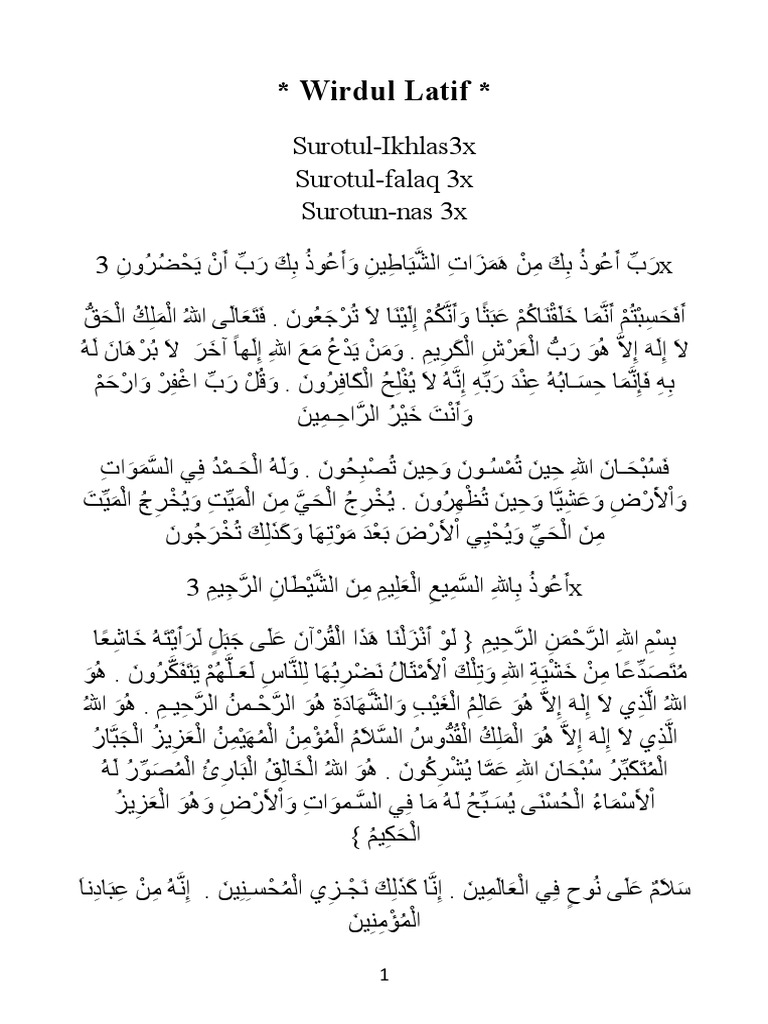 * Wirdul Latif *
Surotul-Ikhlas3x
Surotul-falaq 3x
Surotun-nas 3x
xرَبِّ أَعُوذُ بِكَ مِنْ هَمَزَاتِ الشَّيَاطِينِ وَأَعُوذُ بِكَ رَبِّ أَنْ يَحْضُرُونِ 3
أَفَحَسِبْتُمْ أَنَّمَا خَلَقْنَاكُمْ عَبَثًا وَأَنَّكُمْ إِلَيْنَا لاَ تُرْجَعُونَ . فَتَعَالَى اللهُ الْمَلِكُ الْحَقُّ
لاَ إِلَهَ إِلاَّ هُوَ رَبُّ الْعَرْشِ الْكَرِيمِ . وَمَنْ يَدْعُ مَعَ اللهِ إِلَهاً آخَرَ لاَ بُرْهَانَ لَهُ
بِهِ فَإِنَّمَا حِسَـابُهُ عِنْدَ رَبِّهِ إِنَّهُ لاَ يُفْلِحُ الْكَافِرُونَ . وَقُلْ رَبِّ اغْفِرْ وَارْحَمْ
وَأَنْتَ خَيْرُ الرَّاحِـمِينَ
فَسُبْحَـانَ اللهِ حِينَ تُمْسُـونَ وَحِينَ تُصْبِحُونَ . وَلَهُ الْحَـمْدُ فِي السَّمَوَاتِ
وَاْلأَرْضِ وَعَشِيًّا وَحِينَ تُظْهِرُونَ . يُخْرِجُ الْحَيَّ مِنَ الْمَيِّتِ وَيُخْرِجُ الْمَيِّتَ
مِنَ الْحَيِّ وَيُحْيِي اْلأَرْضَ بَعْدَ مَوْتِهَا وَكَذَلِكَ تُخْرَجُونَ
xأَعُوذُ بِاللهِ السَّمِيعِ الْعَلِيمِ مِنَ الشَّيْطَانِ الرَّجِيمِ 3
بِسْمِ اللهِ الرَّحْمَنِ الرَّحِيمِ { لَوْ أَنْزَلْنَا هَذَا الْقُرْآنَ عَلَى جَبَلٍ لَرَأَيْتَهُ خَاشِعًا
مُتَصَدِّعًا مِنْ خَشْيَةِ اللهِ وَتِلْكَ اْلأَمْثَالُ نَضْرِبُهَا لِلنَّاسِ لَعَـلَّهُمْ يَتَفَكَّرُونَ . هُوَ
اللهُ الَّذِي لاَ إِلهَ إِلاَّ هُوَ عَالِمُ الْغَيْبِ وَالشَّهَادَةِ هُوَ الرَّحْـمنُ الرَّحِيـمِ . هُوَ اللهُ
الَّذِي لاَ إِلهَ إِلاَّ هُوَ الْمَلِكُ الْقُدُّوسُ السَّلاَمُ الْمُؤْمِنُ الْمُهَيْمِنُ الْعَزِيزُ الْجَبَّارُ
الْمُتَكَبِّرُ سُبْحَانَ اللهِ عَمَّا يُشْرِكُونَ . هُوَ اللهُ الْخَالِقُ الْبَارِئُ الْمُصَوِّرُ لَهُ
اْلأَسْمَاءُ الْحُسْنَى يُسَـبِّحُ لَهُ مَا فِي السَّـموَاتِ وَاْلأَرْضِ وَهُوَ الْعَزِيزُ
الْحَكِيمُ }
سَلاَمٌ عَلَى نُوحٍ فِي الْعَالَمِينَ . إِنَّا كَذَلِكَ نَجْـزِي الْمُحْسـِنِينَ . إِنَّهُ مِنْ عِبَادِناَ
الْمُؤْمِنِينَ
1